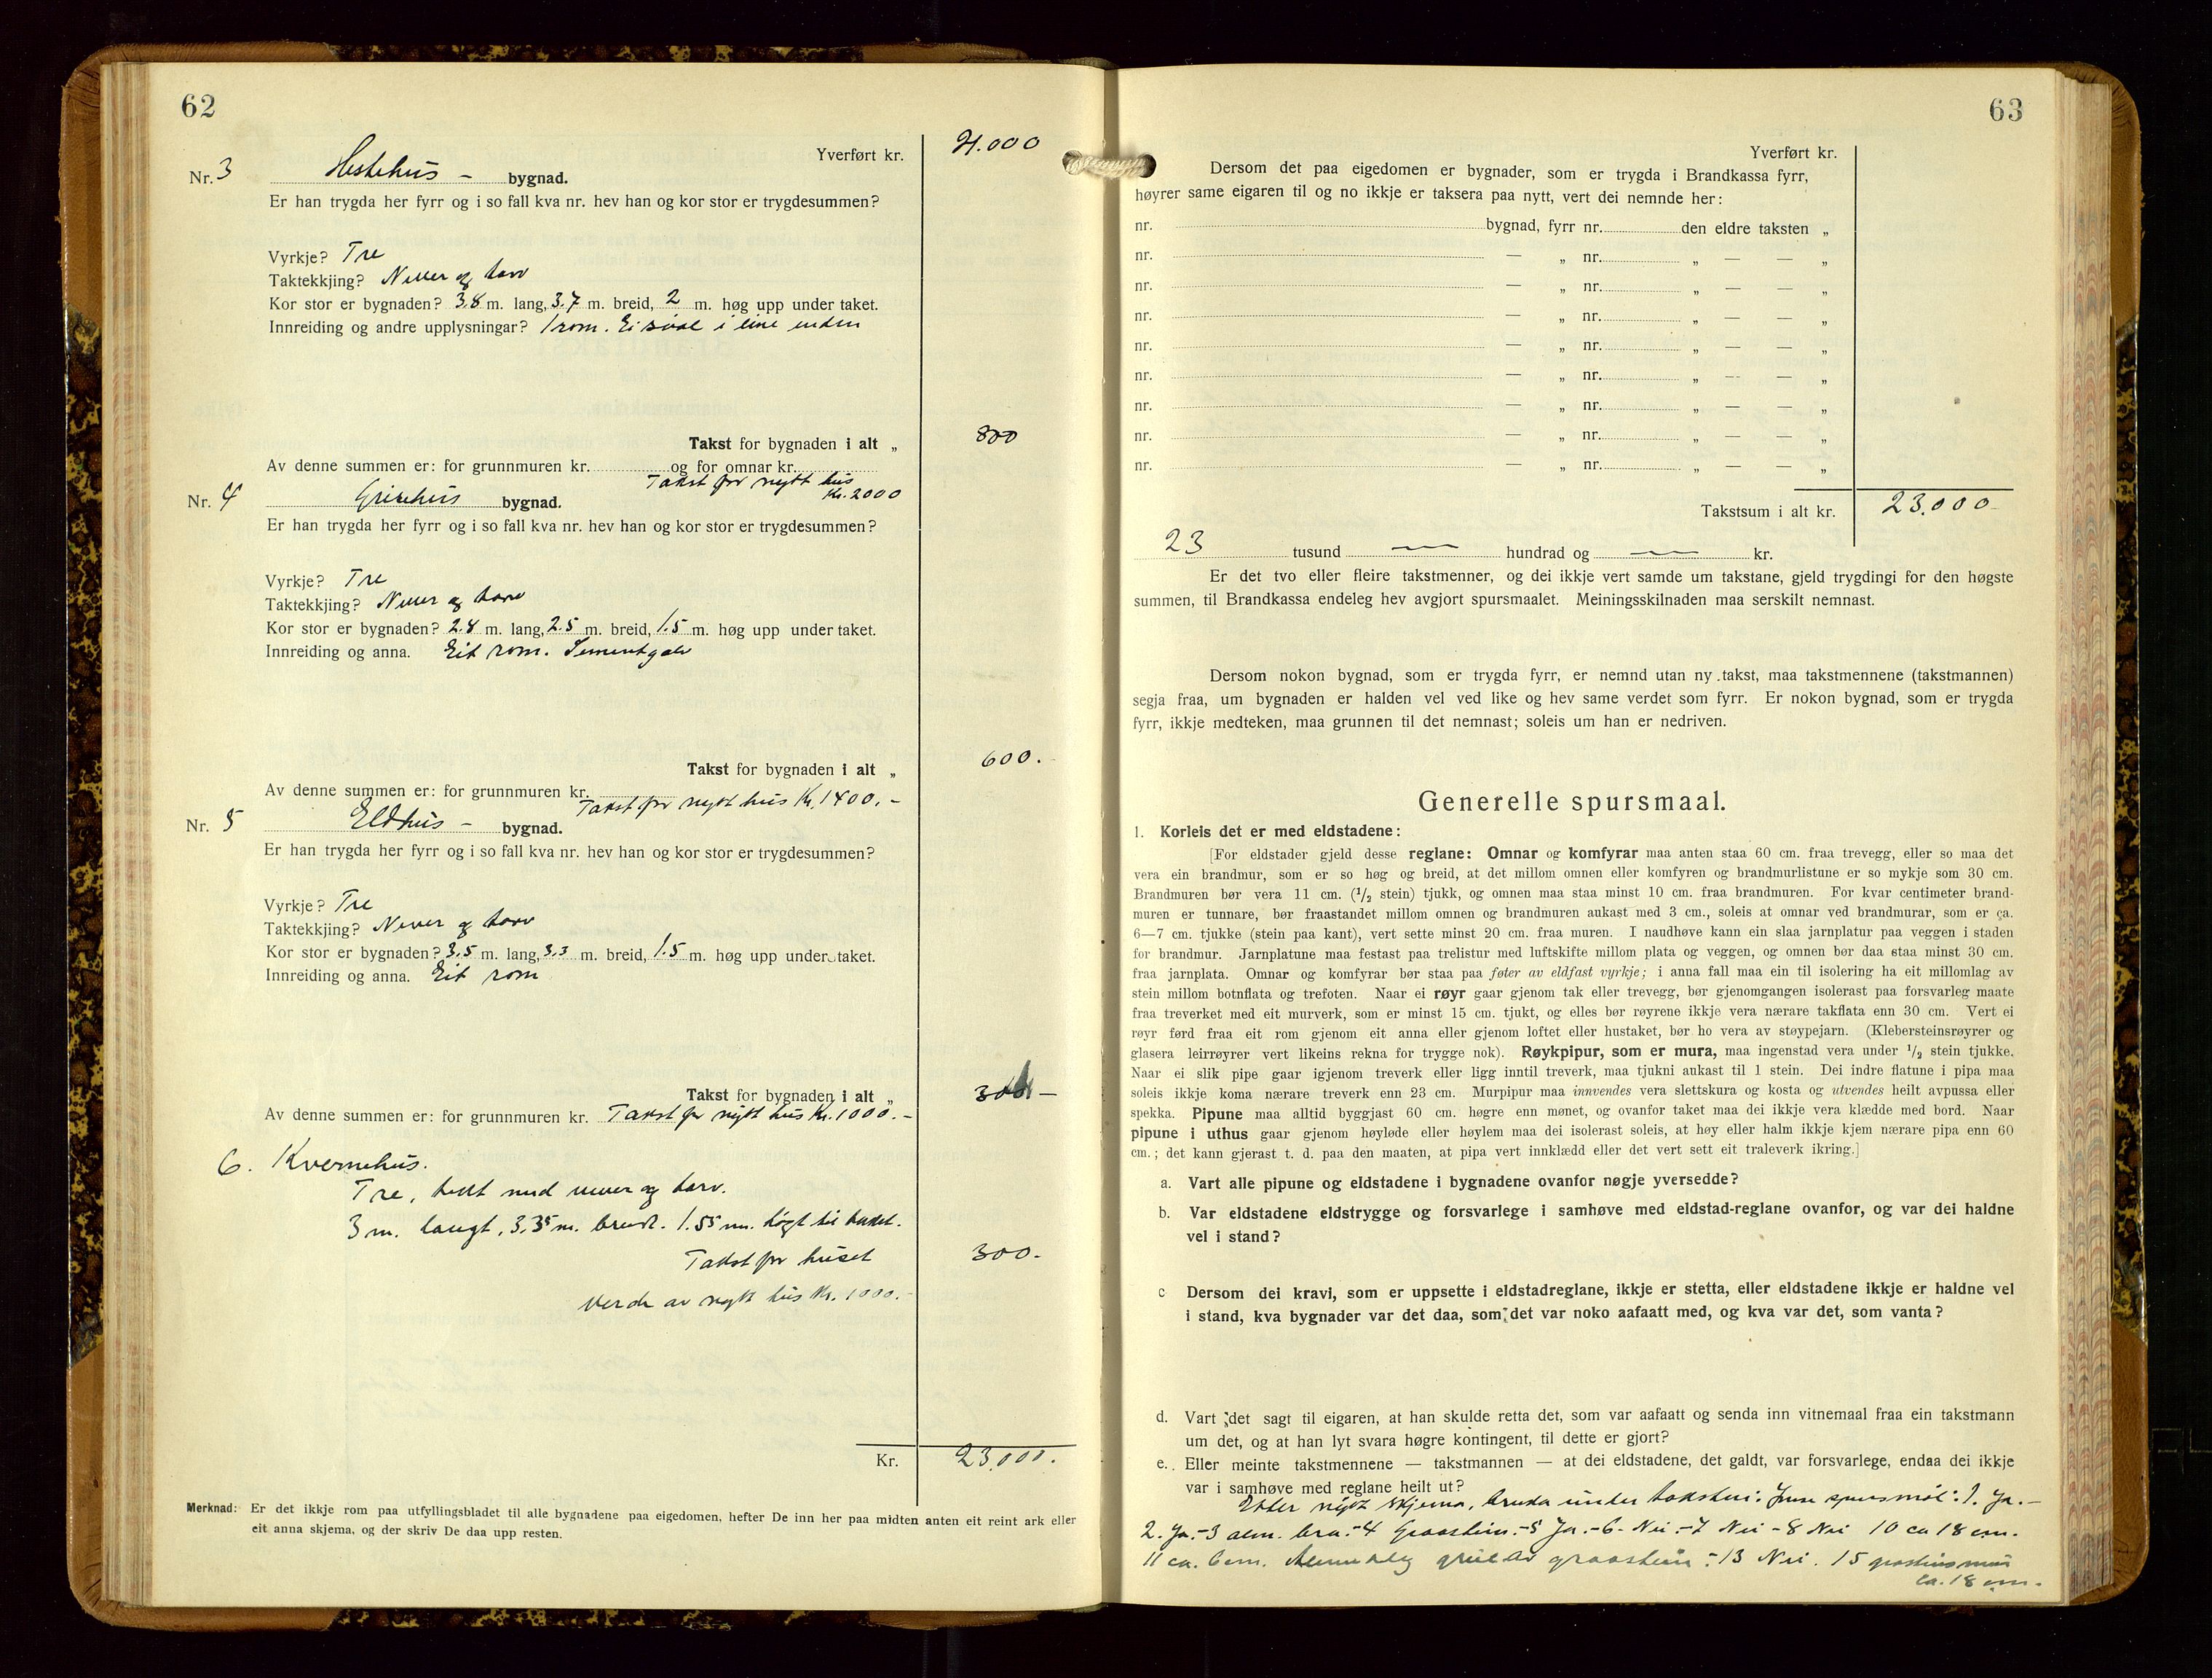 62
Yverført kr. 21.000
Nr. 3 Hestehus – bygnad.
Er han trygda her fyrr og i so fall kva nr. hev han og kor stor er trygdesummen?
Vyrkje? Tre
Taktekkjing? Never og torv
Kor stor er bygnaden? 3.8 m. lang, 3.7 m. breid, 2 m. høg upp under taket.
Innreiding og andre upplysningar? 1 rom. Ei sval i eine enden
Takst for bygnaden i alt „ 800
Av denne summen er: for grunnmuren kr. og for omnar kr.
Takst for nytt hus
Kr. 2000
Nr. 4 Grisehus bygnad.
Er han trygda her fyrr og i so fall kva nr. hev han og kor stor er trygdesummen?
Vyrkje? Tre
Taktekkjing? Never og torv
Kor stor er bygnaden? 2.8 m. lang, 2.5 m. breid, 1.5 m. høg upp under taket.
Innreiding og anna. Eit rom. Sementgolv
Takst for bygnaden i alt „ 600.
Av denne summen er: for grunnmuren kr.
Takst for nytt hus Kr. 1400.-
Nr. 5 Eldhus – bygnad.
Er han trygda her fyrr og i so fall kva nr. hev han og kor stor er trygdesummen?
Vyrkje? Tre
Taktekkjing? Never og torv
Kor stor er bygnaden? 3.5 m. lang, 3.3 m. breid, 1.5 m. høg upp under taket.
Innreiding og anna. Eit rom
Takst for bygnaden i alt „ 300 –
Av denne summen er: for grunnmuren kr. Takst for nytt hus Kr. 1000.-
6. Kvernhus.
Tre, tekt med never og torv.
3 m. langt, 3.35 m. breidt. 1.55 m. høgt til taket.
Takst for huset 300.-
Verde av nytt hus Kr. 1000.-
Kr. 23.000.
Merknad: Er det ikkje rom paa utfyllingsbladet til alle bygnadene paa eigedomen, hefter De inn her paa midten anten eit reint ark eller
eit anna skjema, og der skriv De daa upp resten.
63
Yverført kr.
Dersom det paa eigedomen er bygnader, som er trygda i Brandkassa fyrr,
høyrer same eigaren til og no ikkje er taksera paa nytt, vert dei nemnde her:
nr. bygnad, fyrr nr. den eldre taksten „
nr. — „ nr. „ — — „
nr. — „ nr. „ — — „
nr. — „ nr. „ — — „
nr. — „ nr. „ — — „
nr. — „ nr. „ — — „
nr. — „ nr. „ — — „
nr. — „ nr. „ — — „
nr. — „ nr. „ — — „
Takstsum i alt kr. 23.000-
23 tusund — hundrad og — kr.
Er det tvo eller fleire takstmenner, og dei ikkje vert samde um takstane, gjeld trygdingi for den høgste
summen, til Brandkassa endeleg hev avgjort spursmaalet. Meiningsskilnaden maa serskilt nemnast.
Dersom nokon bygnad, som er trygda fyrr, er nemnd utan ny takst, maa takstmennene (takstmannen)
segja fraa, um bygnaden er halden vel ved like og hev same verdet som fyrr. Er nokon bygnad, som er trygda
fyrr, ikkje medteken, maa grunnen til det nemnast; soleis um han er nedriven.
Generelle spursmaal.
1. Korleis det er med eldstadene:
[For eldstader gjeld desse reglane: Omnar og komfyrar maa anten staa 60 cm. fraa trevegg, eller so maa det
vera ein brandmur, som er so høg og breid, at det millom omnen eller komfyren og brandmurlistune er so mykje som 30 cm.
Brandmuren bør vera 11 cm. (1/2 stein) tjukk, og omnen maa staa minst 10 cm. fraa brandmuren. For kvar centimeter brand-
muren er tunnare, bør fraastandet millom omnen og brandmuren aukast med 3 cm., soleis at omnar ved brandmurar, som er ca.
6—7 cm. tjukke (stein paa kant), vert sette minst 20 cm. fraa muren. I naudhøve kann ein slaa jarnplatur paa veggen i staden
for brandmur. Jarnplatune maa festast paa trelistur med luftskifte millom plata og veggen, og omnen bør daa staa minst 30 cm.
fraa jarnplata. Omnar og komfyrar bør staa paa føter av eldfast vyrkje; i anna fall maa ein til isolering ha eit millomlag av
stein millom botnflata og trefoten. Naar ei røyr gaar gjenom tak eller trevegg, bør gjenomgangen isolerast paa forsvarleg maate
fraa treverket med eit murverk, som er minst 15 cm. tjukt, og elles bør røyrene ikkje vera nærare takflata enn 30 cm. Vert ei
røyr førd fraa eit rom gjenom eit anna eller gjenom loftet eller hustaket, bør ho vera av støypejarn. (Klebersteinsrøyrer og
glasera leirrøyrer vert likeins rekna for trygge nok). Røykpipur, som er mura, maa ingenstad vera under 1/2 stein tjukke.
Naar ei slik pipe gaar igjenom treverk eller ligg inntil treverk, maa tjukni aukast til 1 stein. Dei indre flatune i pipa maa
soleis ikkje koma nærare treverk enn 23 cm. Murpipur maa innvendes vera slettskura og kosta og utvendes heilt avpussa eller
spekka. Pipune maa alltid byggjast 60 cm. høgre enn mønet, og ovanfor taket maa dei ikkje vera klædde med bord. Naar
pipune i uthus gaar gjenom høyløde eller høylem maa dei isolerast soleis, at høy eller halm ikkje kjem nærare pipa enn 60
cm.; det kann gjerast t. d. paa den maaten, at pipa vert innklædd eller det vert sett eit traleverk ikring.]
a. Vart alle pipune og eldstadene i bygnadene ovanfor nøgje yversedde?
b. Var eldstadene eldstrygge og forsvarlege i samhøve med eldstad-reglane ovanfor, og var dei haldne
vel i stand?
c Dersom dei kravi, som er uppsette i eldstadreglane, ikkje er stetta, eller eldstadene ikkje er haldne vel
i stand, kva bygnader var det daa, som det var noko aafaatt med, og kva var det, som vanta?
d. Vart det sagt til eigaren, at han skulde retta det, som var aafaatt og senda inn vitnemaal fraa ein takstmann
um det, og at han lyt svara høgre kontingent, til dette er gjort?
e. Eller meinte takstmennene — takstmannen — at dei eldstadene, det galdt, var forsvarlege, endaa dei ikkje
var i samhøve med reglane heilt ut?
Etter nytt skjema, bruka under taksten: spursmål: 1. Ja.-
2. Ja.-3 alm. bra.-4 Graastein.-5 Ja.-6- Nei.-7 Nei -8 Nei 10 ca 18 cm.
11 ca. 6 cm. av graastein.-13 Nei. 15 grasteinsmur
ca. 18 cm.